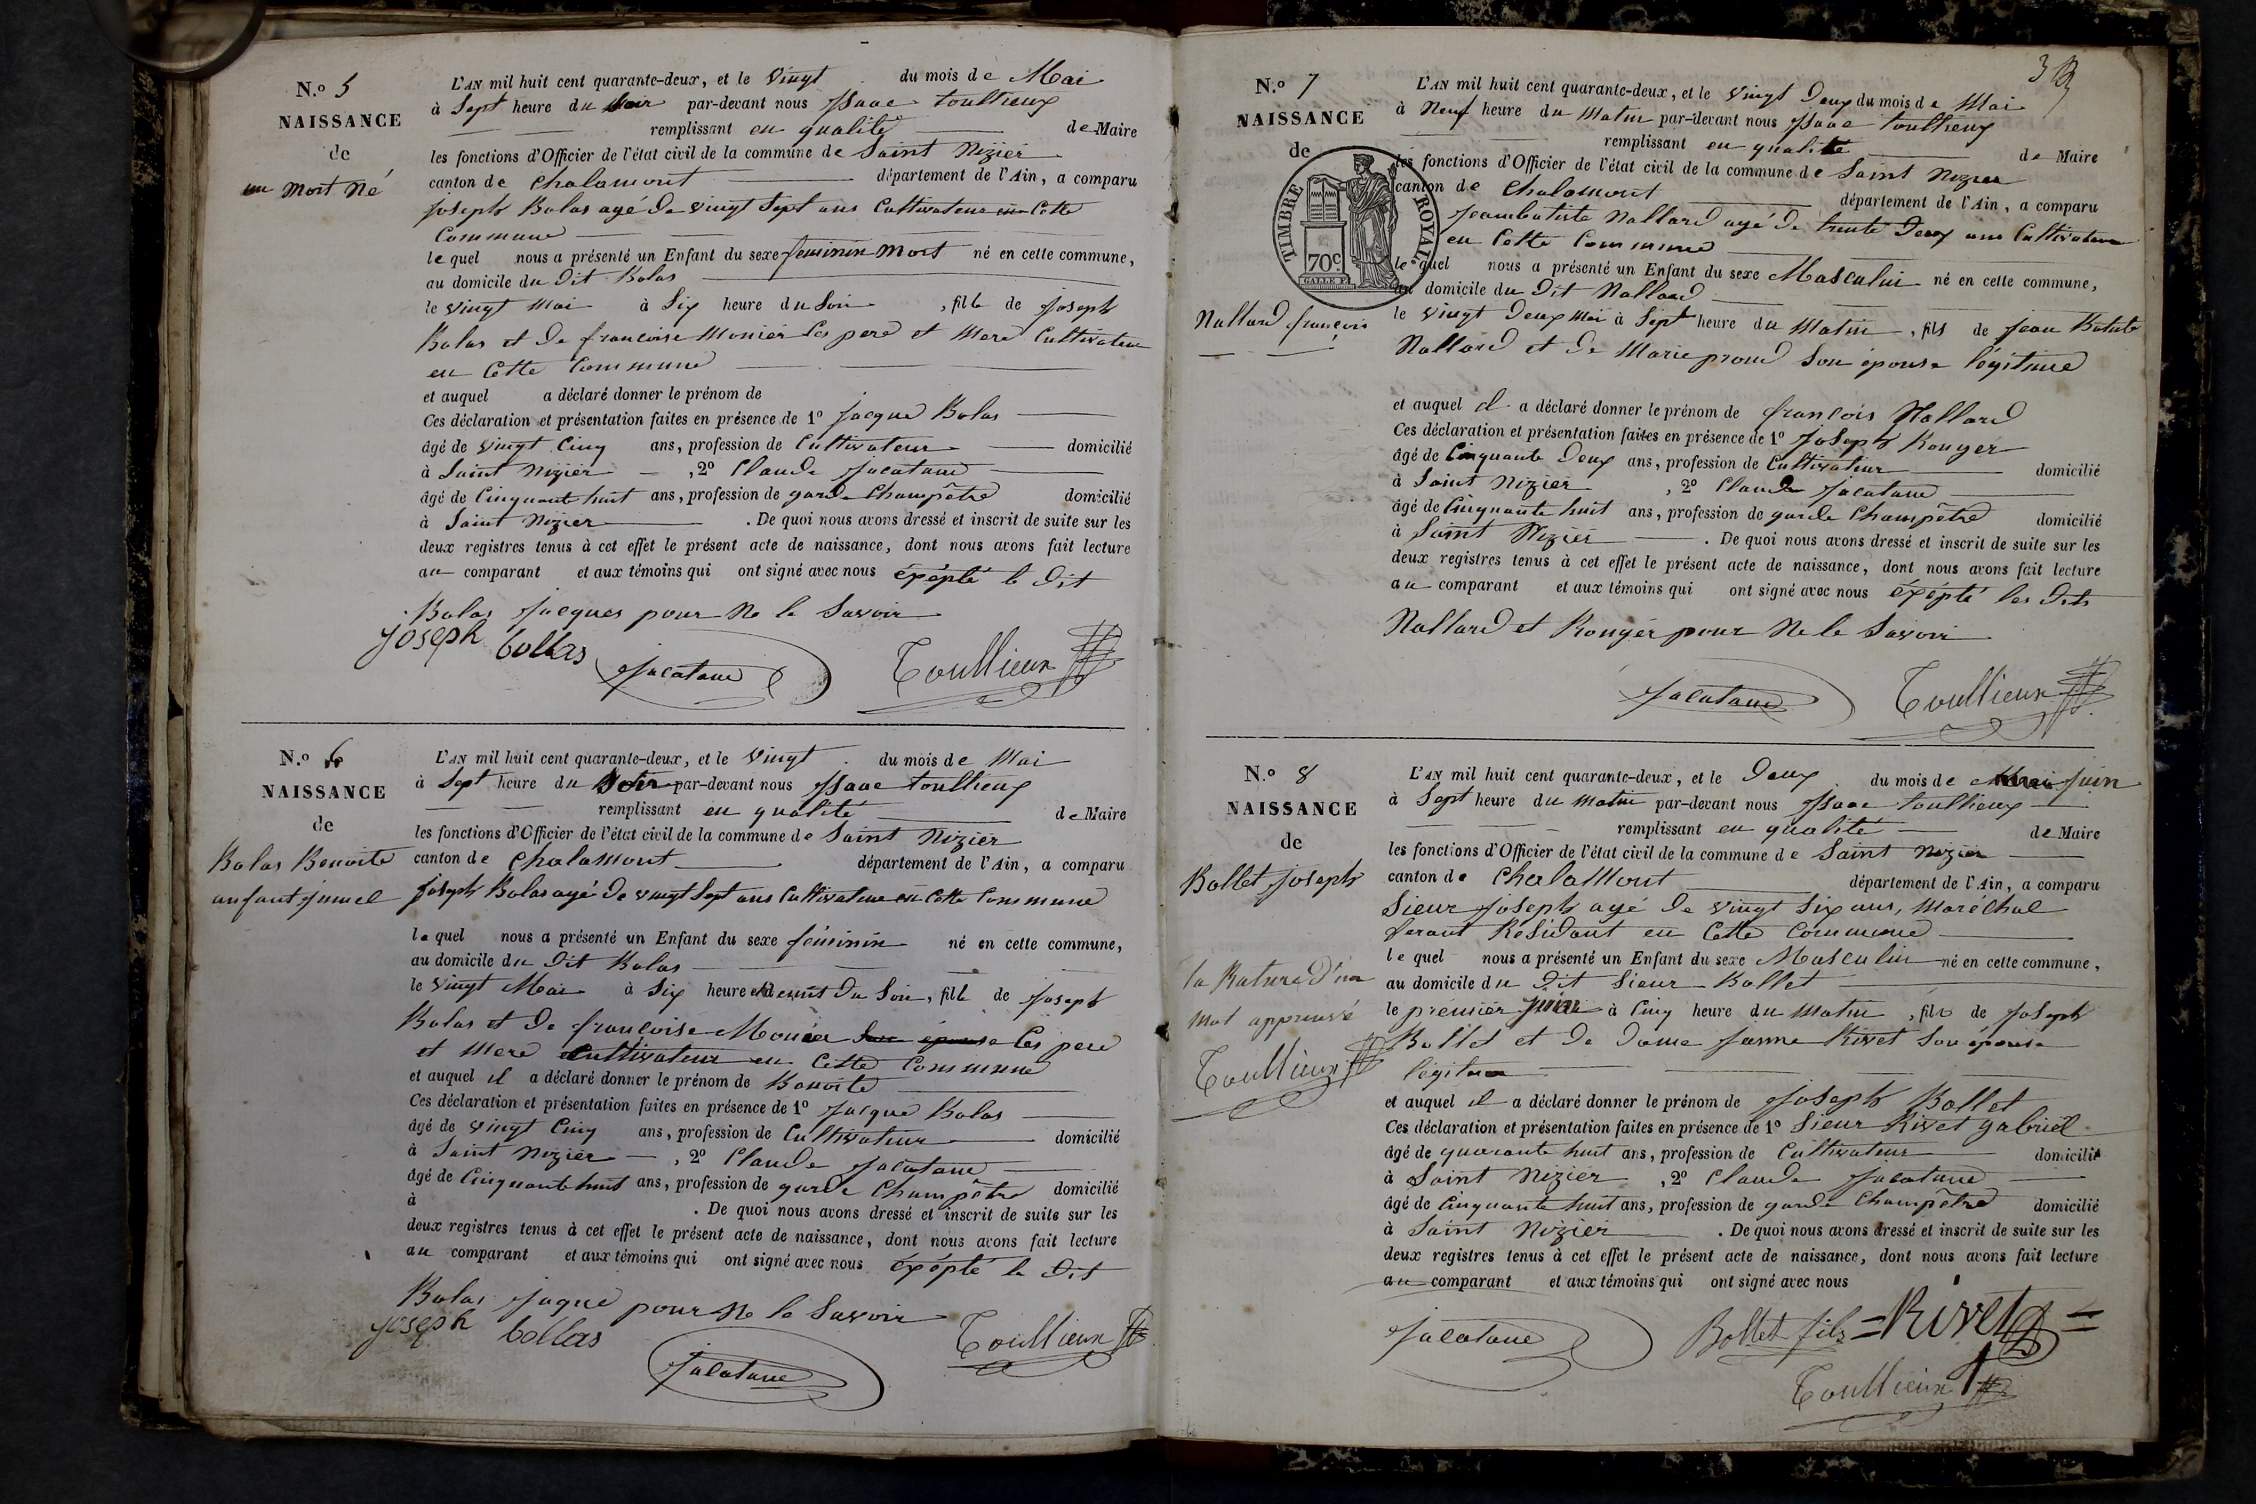 N.º 5
NAISSANCE
de
un Mort Né
L'AN mil huit cent quarante-deux, et le Vingt du mois de Mai
à Sept heure du Soir par-devant nous Isaac toullieux
remplissant en qualité de Maire
les fonctions d'Officier de l'état civil de la commune de Saint Nizier
canton de Chalamont département de l'Ain, a comparu
Joseph Bolas agé De vingt Sept ans Cultivateur en Cette
Commune
le quel nous a présenté un Enfant du sexe feminin Mort né en cette commune,
au domicile du Dit Bolas
le vingt Mai à Six heure du Soir , fille de Joseph
Bolas et De françoise Monier Ces pere et Mere Cultivateur
en Cette Commune
et auquel a déclaré donner le prénom de
Ces déclaration et présentation faites en présence de 1º Jacque Bolas
âgé de vingt Cinq ans, profession de Cultivateur domicilié
à Saint Nizier , 2º Claude Jacatane
âgé de Cinquante huit ans, profession de garde Champêtre domicilié
à Saint Nizier . De quoi nous avons dressé et inscrit de suite sur les
deux registres tenus à cet effet le présent acte de naissance, dont nous avons fait lecture
au comparant et aux témoins qui ont signé avec nous éxépté le Dit
Bolas Jacques pour Ne le Savoir
joseph bollas Jacatane Toullieux
N.º 6
NAISSANCE
de
Bolas Benoite
anfant jumel
L'AN mil huit cent quarante-deux, et le Vingt du mois de Mai
à Sept heure du Soir par-devant nous Isaac toullieux
remplissant en qualité de Maire
les fonctions d'Officier de l'état civil de la commune de Saint Nizier
canton de Chalamont département de l'Ain, a comparu
Joseph Bolas agé De vingt Sept ans Cultivateur en Cette Commune
le quel nous a présenté un Enfant du sexe féminin né en cette commune,
au domicile du Dit Bolas
le vingt Mai à Six heure et demis Du Soir, fille de Joseph
Bolas et De françoise Monier Son épouse Ces pere
et Mere Cultivateur en Cette Commune
et auquel il a déclaré donner le prénom de Benoite
Ces déclaration et présentation faites en présence de 1º Jacque Bolas
âgé de vingt Cinq ans, profession de Cultivateur domicilié
à Saint Nizier , 2º Claude Jacatane
âgé de Cinquante huit ans, profession de garde Champêtre domicilié
à . De quoi nous avons dressé et inscrit de suite sur les
deux registres tenus à cet effet le présent acte de naissance, dont nous avons fait lecture
au comparant et aux témoins qui ont signé avec nous éxépté le Dit
Bolas Jaque pour Ne le Savoir
joseph bollas Jacatane Toullieux
3
N.º 7
NAISSANCE
de
TIMBRE ROYAL
70 C.
Nallard françois
L'AN mil huit cent quarante-deux, et le vingt Deux du mois de Mai
à Neuf heure du Matin par-devant nous Isaac toullieux
remplissant en qualité de Maire
les fonctions d'Officier de l'état civil de la commune de Saint Nizier
canton de Chalamont département de l'Ain, a comparu
Jeambatiste Nallard agé De trente Deux ans Cultivateur
en Cette Commune
le quel nous a présenté un Enfant du sexe Masculin né en cette commune,
au domicile du Dit Nallard
le vingt Deux Mai à Sept heure du Matin , fils de Jean Batiste
Nallard et De Marie proud Son épouse légitime
et auquel il a déclaré donner le prénom de françois Nallard
Ces déclaration et présentation faites en présence de 1º Joseph Rouger
âgé de Cinquante Deux ans, profession de Cultivateur domicilié
à Saint Nizier , 2º Claude Jacatane
âgé de Cinquante huit ans, profession de garde Champêtre domicilié
à Saint Nizier . De quoi nous avons dressé et inscrit de suite sur les
deux registres tenus à cet effet le présent acte de naissance, dont nous avons fait lecture
au comparant et aux témoins qui ont signé avec nous éxépté les Dits
Nallard et Rouger pour Ne le Savoir
Jacatane Toullieux
N.º 8
NAISSANCE
de
Bollet Joseph
la Rature D'un
Mot approuvé
Toullieux
L'AN mil huit cent quarante-deux, et le Deux du mois de Mai Juin
à Sept heure du matin par-devant nous Isaac toullieux
remplissant en qualité de Maire
les fonctions d'Officier de l'état civil de la commune de Saint Nizier
canton de Chalamont département de l'Ain, a comparu
Sieur Joseph agé De vingt Six ans, Maréchal
ferant Résidant en Cette Commune
le quel nous a présenté un Enfant du sexe Masculin né en cette commune,
au domicile du Dit Sieur Bollet
le premier Juin à Cinq heure du Matin , fils de Joseph
Bollet et De Dame Janne Rivet Son épouse
légitime
et auquel il a déclaré donner le prénom de Joseph Bollet
Ces déclaration et présentation faites en présence de 1º Sieur Rivet gabriel
âgé de quarante huit ans, profession de Cultivateur domicilié
à Saint Nizier , 2º Claude Jacatane
âgé de Cinquante huit ans, profession de garde Champêtre domicilié
à Saint Nizier . De quoi nous avons dressé et inscrit de suite sur les
deux registres tenus à cet effet le présent acte de naissance, dont nous avons fait lecture
au comparant et aux témoins qui ont signé avec nous
Jacatane Bollet fils =Rivet=
Toullieux